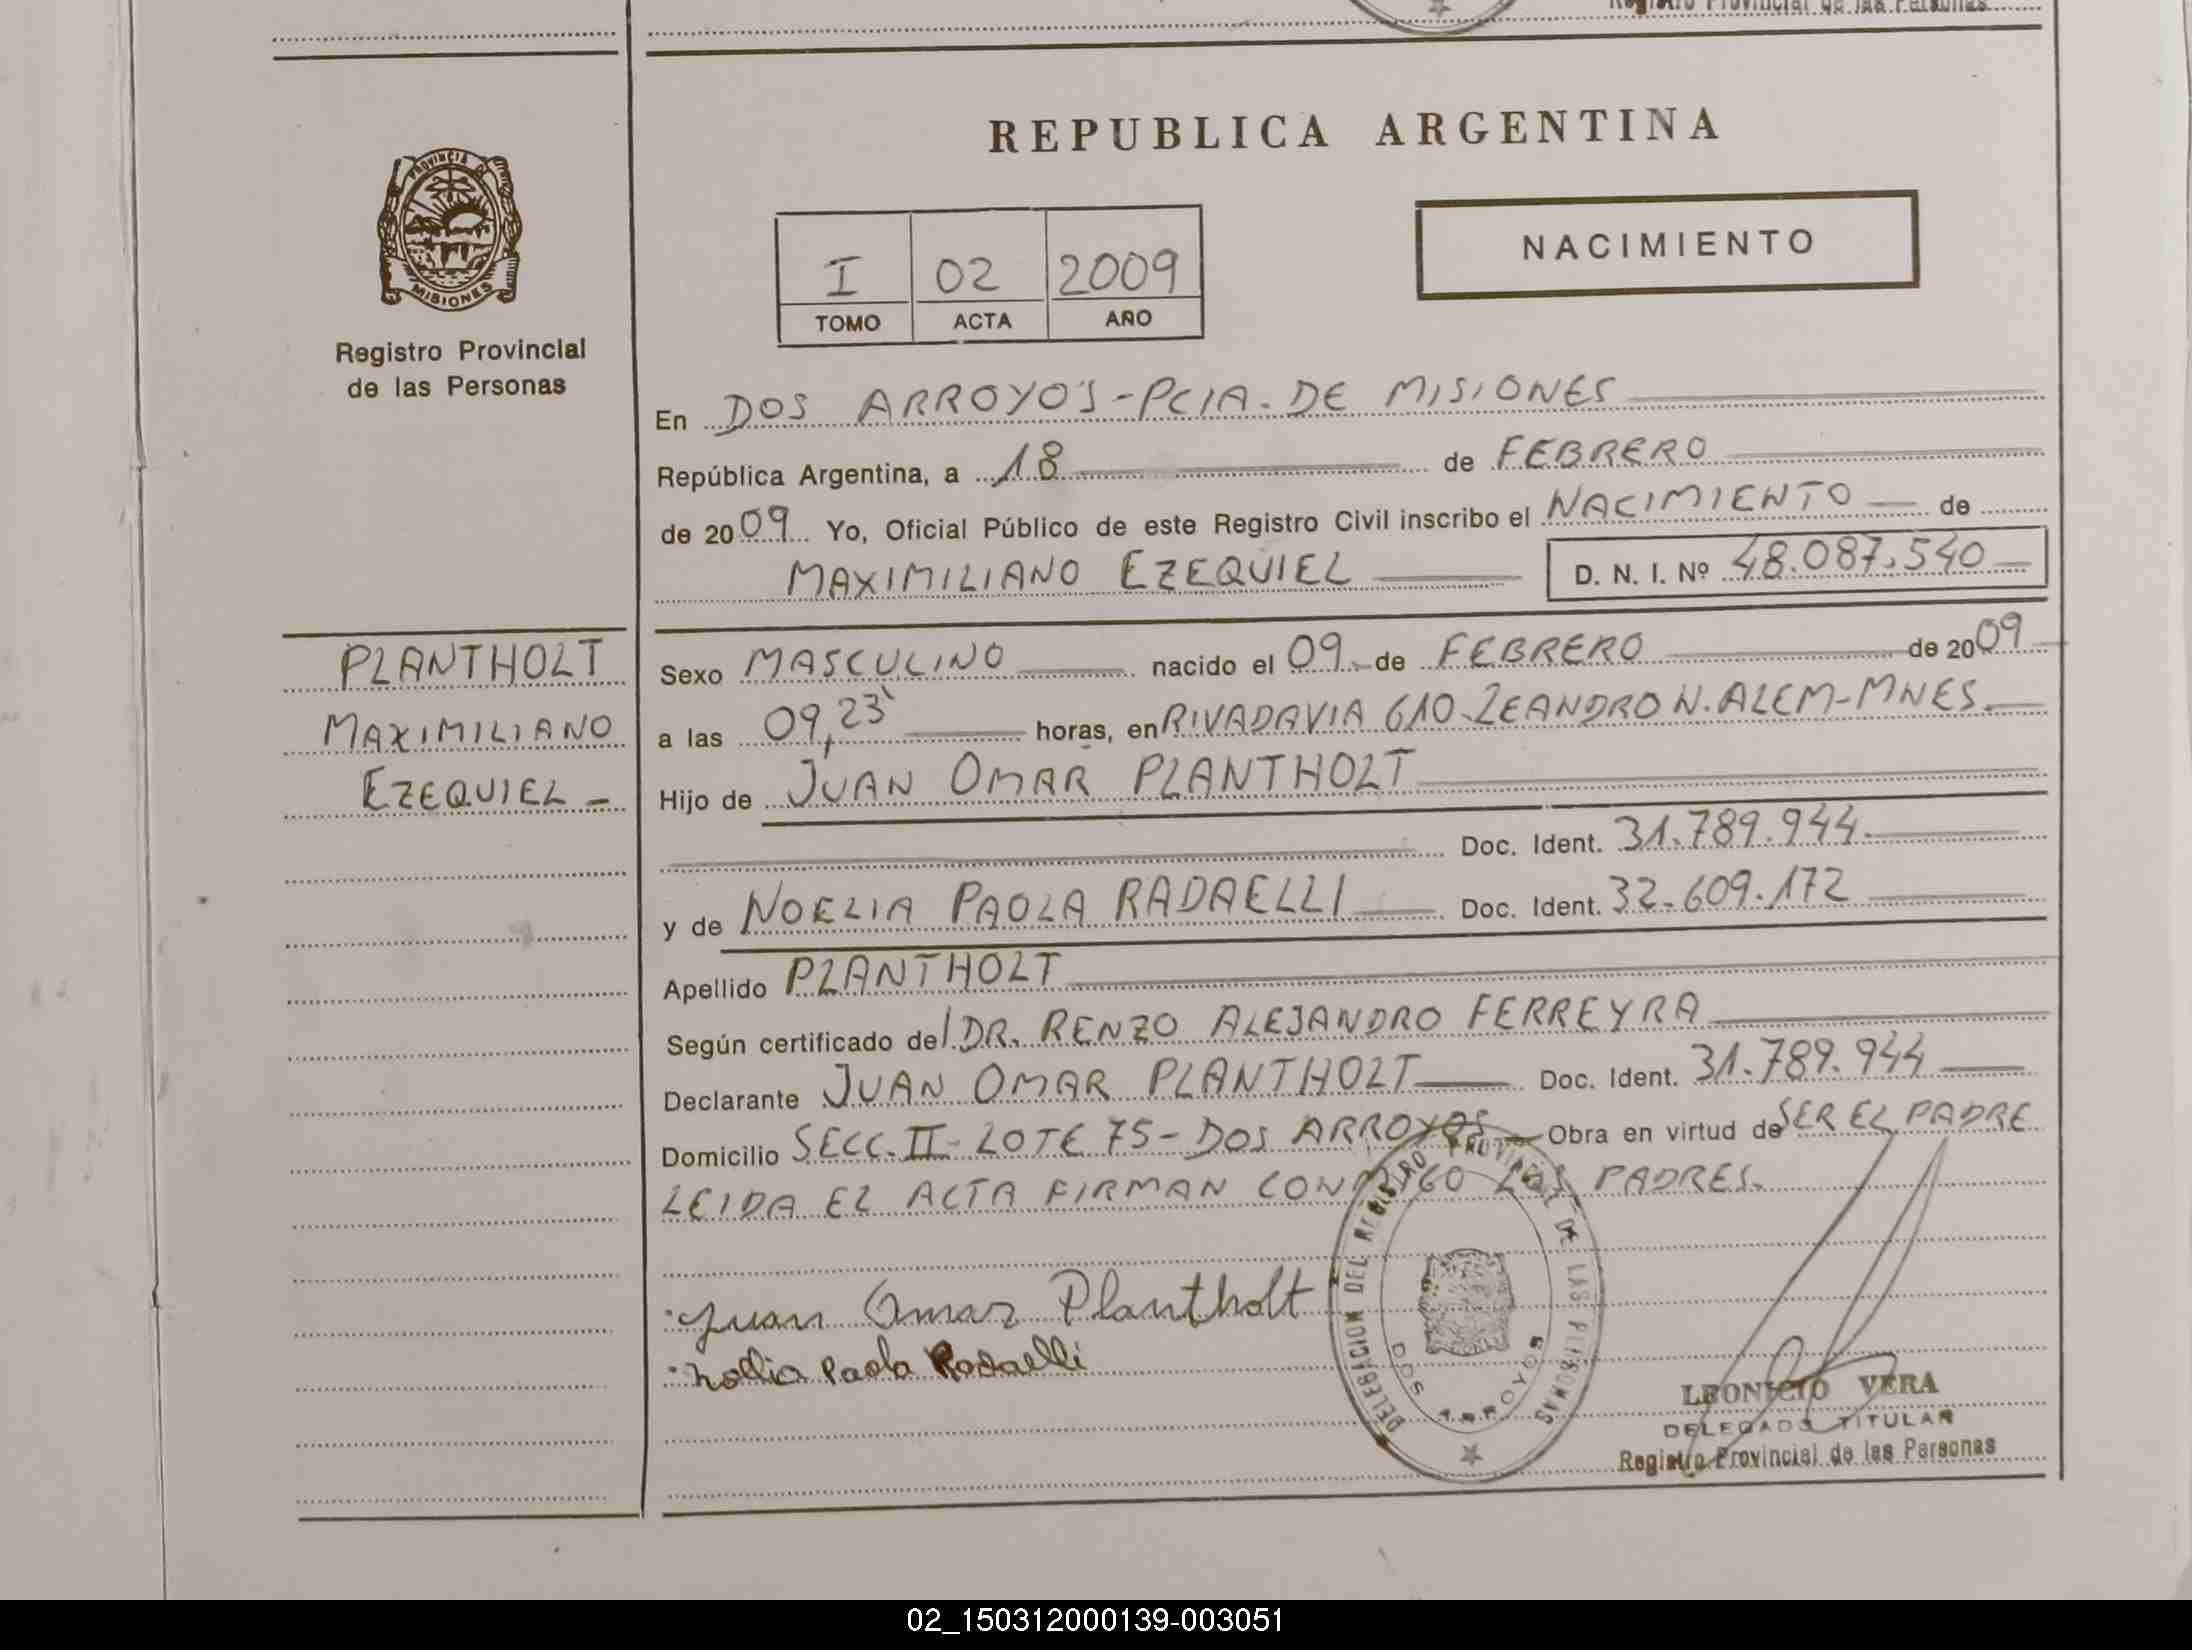 Registro Provincial de las Personas
REPUBLICA ARGENTINA
PROVINCIA DE
MISIONES
Registro Provincial
de las Personas
I 02 2009
TOMO ACTA AÑO
NACIMIENTO
En DOS ARROYOS-PCIA. DE MISIONES
República Argentina, a 18 de FEBRERO
de 2009 Yo, Oficial Público de este Registro Civil inscribo el NACIMIENTO de
MAXIMILIANO EZEQUIEL D. N. I. Nº 48.087.540
PLANTHOLT
MAXIMILIANO
EZEQUIEL -
Sexo MASCULINO nacido el 09 de FEBRERO de 2009
a las 09,23 horas, en RIVADAVIA 610-LEANDRO N. ALEM-MNES.
Hijo de JUAN OMAR PLANTHOLT
Doc. Ident. 31.789.944
y de NOELIA PAOLA RADAELLI Doc. Ident. 32.609.172
Apellido PLANTHOLT
Según certificado del DR. RENZO ALEJANDRO FERREYRA
Declarante JUAN OMAR PLANTHOLT Doc. Ident. 31.789.944
Domicilio SECC. II-LOTE 75-DOS ARROYOS Obra en virtud de SER EL PADRE
LEIDA EL ACTA FIRMAN CONMIGO LOS PADRES.
Juan Omar Plantholt
Noelia Paola Radaelli
DELEGACION DEL REGISTRO PROVINCIAL DE LAS PERSONAS
DOS ARROYOS
LEONICIO VERA
DELEGADO TITULAR
Registro Provincial de las Personas
02_150312000139-003051